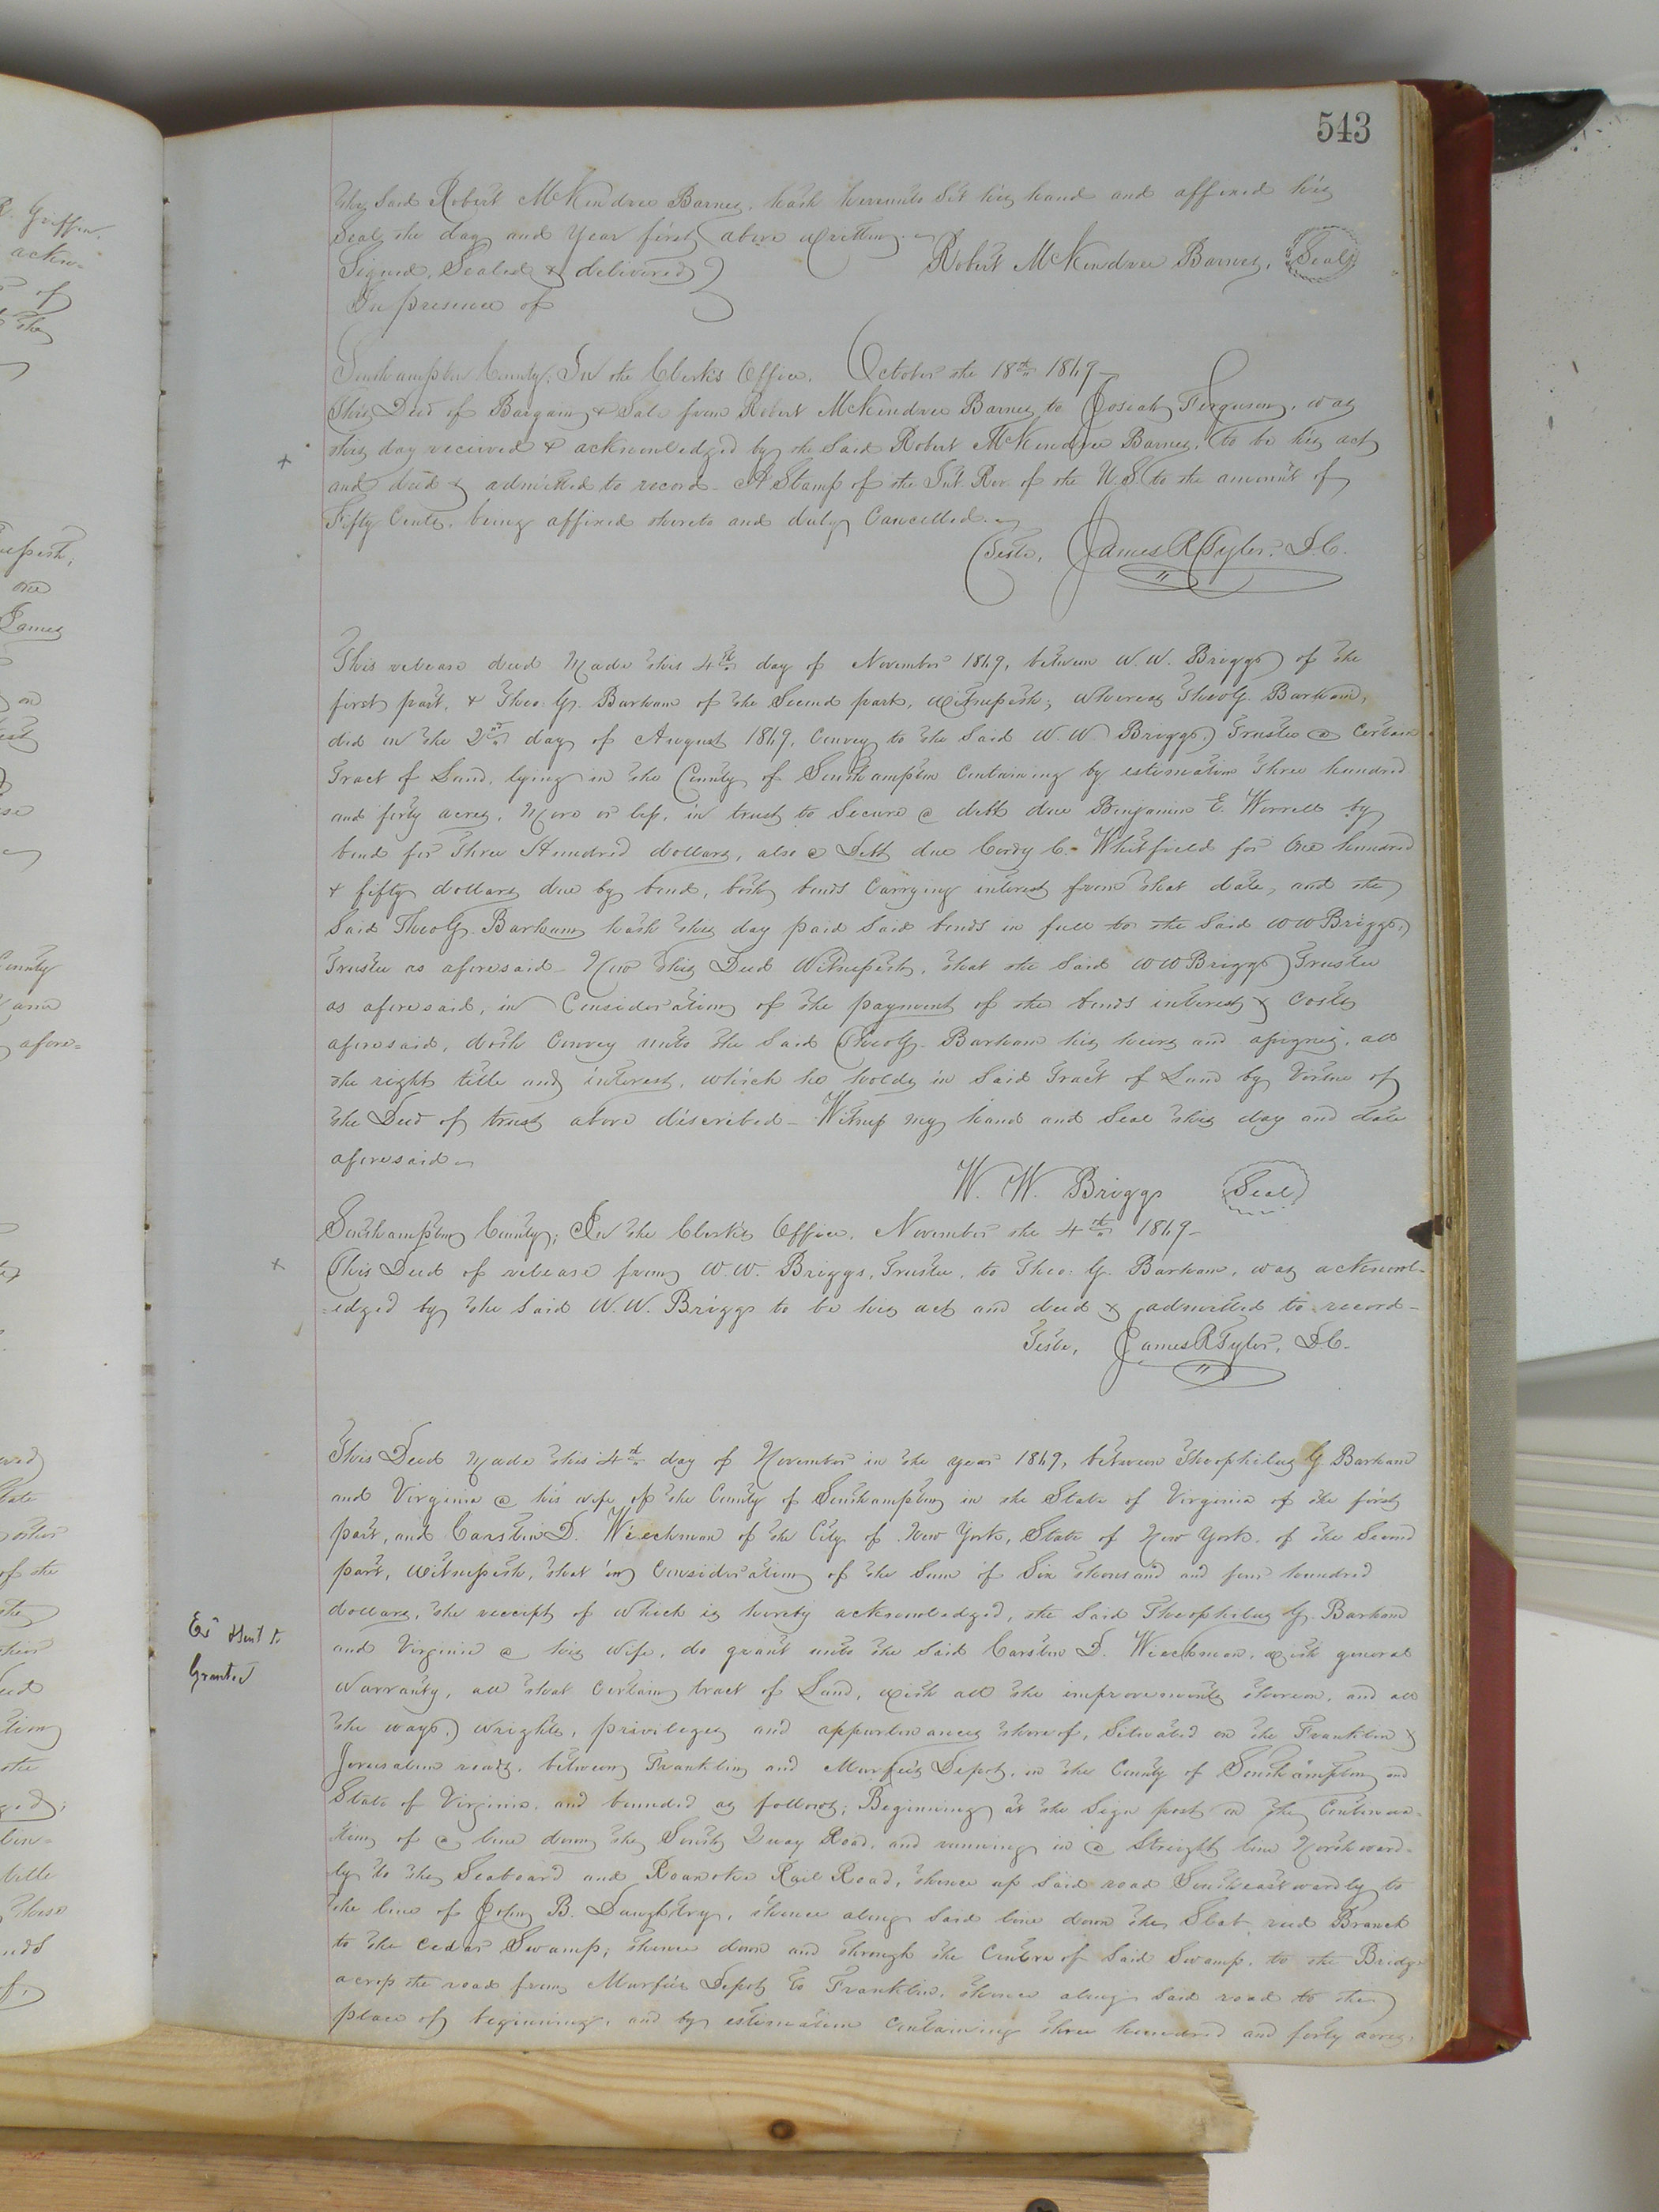 543
the said Robert McKendree Barnes, hath hereunto set his hand and affixed his
seal, the day and year first above written.
Robert McKendree Barnes, Seal
Signed, Sealed & delivered
In presence of
Southampton County; In the Clerk's Office, October the 18th 1869-
This Deed of Bargain & Sale from Robert McKendree Barnes to Josiah Ferguson, was
this day received & acknowledged by the said Robert McKendree Barnes, to be his act
and deed & admitted to record- A Stamp of the Int. Rev. of the U.S. to the amount of
Fifty Cents, being affixed thereto and duly Cancelled.
Teste, James R Tyler, D.C.
This release deed made this 4th day of November 1869, between W. W. Briggs of the
first part, & Theo. G. Barham of the Second part, Witnesseth; whereas Theo G. Barham,
did in the 2nd day of August 1869, Convey to the said W. W Briggs, Trustee a certain
Tract of Land, lying in the County of Southampton Containing by estimation Three hundred
and forty acres, more or less, in trust to Secure a debt due Benjamin E. Worrell by
bond for Three Hundred dollars, also a Debt due Cordy C. Whitfield for One hundred
& fifty dollars due by bond, both bonds Carrying interest from that date, and the
said Theo G. Barham hath this day paid said bonds in full to the said W W Briggs,
Trustee as aforesaid- Now this Deed Witnesseth, that the said W W Briggs Trustee
as aforesaid, in Consideration of the payment of the bonds interest & Costs
aforesaid, doth Convey unto the said Theo G. Barham his heirs and assigns, all
the right title and interest, which he holds in said Tract of Land by Virtue of
the Deed of trust above described- Witness my hand and seal this day and date
aforesaid
W. W. Briggs Seal
Southampton County; In the Clerk's Office, November the 4th 1869-
This Deed of release from W. W. Briggs, Trustee, to Theo: G. Barham, was acknowl-
-edged by the said W. W. Briggs to be his act and deed & admitted to record-
Teste, James R Tyler, D.C.
This Deed made this 4th day of November in the year 1869, between Theophilus G Barham
and Virginia A his wife of the County of Southampton in the State of Virginia of the first
part, and Carsten D. Wieckman of the City of New York, State of New York, of the Second
part, Witnesseth, that in Consideration of the Sum of Six thousand and four hundred
dollars, the receipt of which is hereby acknowledged, the said Theophilus G. Barham
Ex'd & sent to
Grantee
and Virginia A his wife, do grant unto the said Carsten D. Wieckman, with general
Warranty, all that certain tract of Land, with all the improvements thereon, and all
the ways, wrights, privileges and appurtenances thereof, Situated on the Franklin &
Jerusalem roads, between Franklin and Murfee's Depot, in the County of Southampton and
State of Virginia, and bounded as follows; Beginning at the Sign post on the Continua-
tion of a line down the South Quay Road, and running in a Streight line Northward-
ly to the Seaboard and Roanoke Rail Road, thence up said road Southeastwardly to
the line of John B. Daughtry, thence along said line down the Slab Branch
to the Cedar Swamp; thence down and through the Centre of said Swamp, to the Bridge
across the road from Murfee's Depot to Franklin, thence along said road to the
place of beginning, and by estimation Containing three hundred and forty acres,